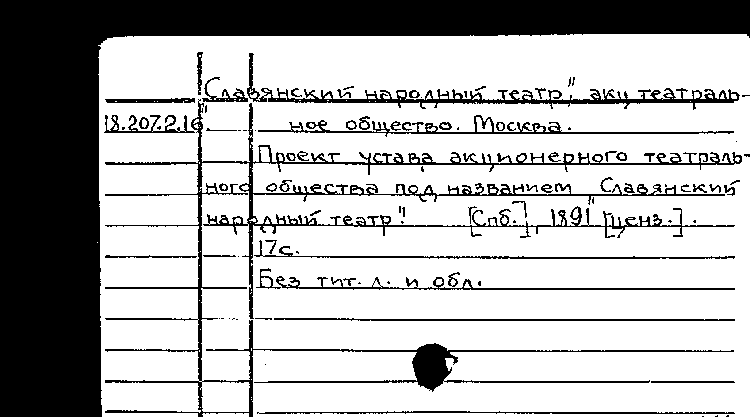 "Славянский народный театр", акц театраль-
18.207.2.16. ное общество. Москва.
Проект устава акционерного театраль-
ного общества под названием "Славянский
народный театр". [Спб.], 1891 [ценз.].
17с.
Без тит. л. и обл.